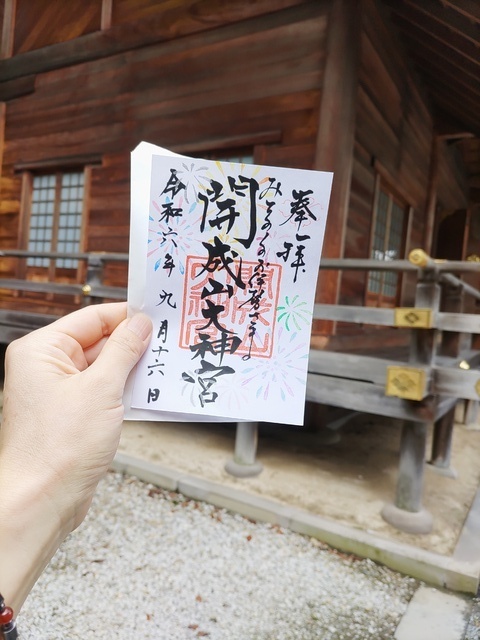 奉拝
みちのくのお伊勢さま
開成山大神宮
令和六年九月十六日